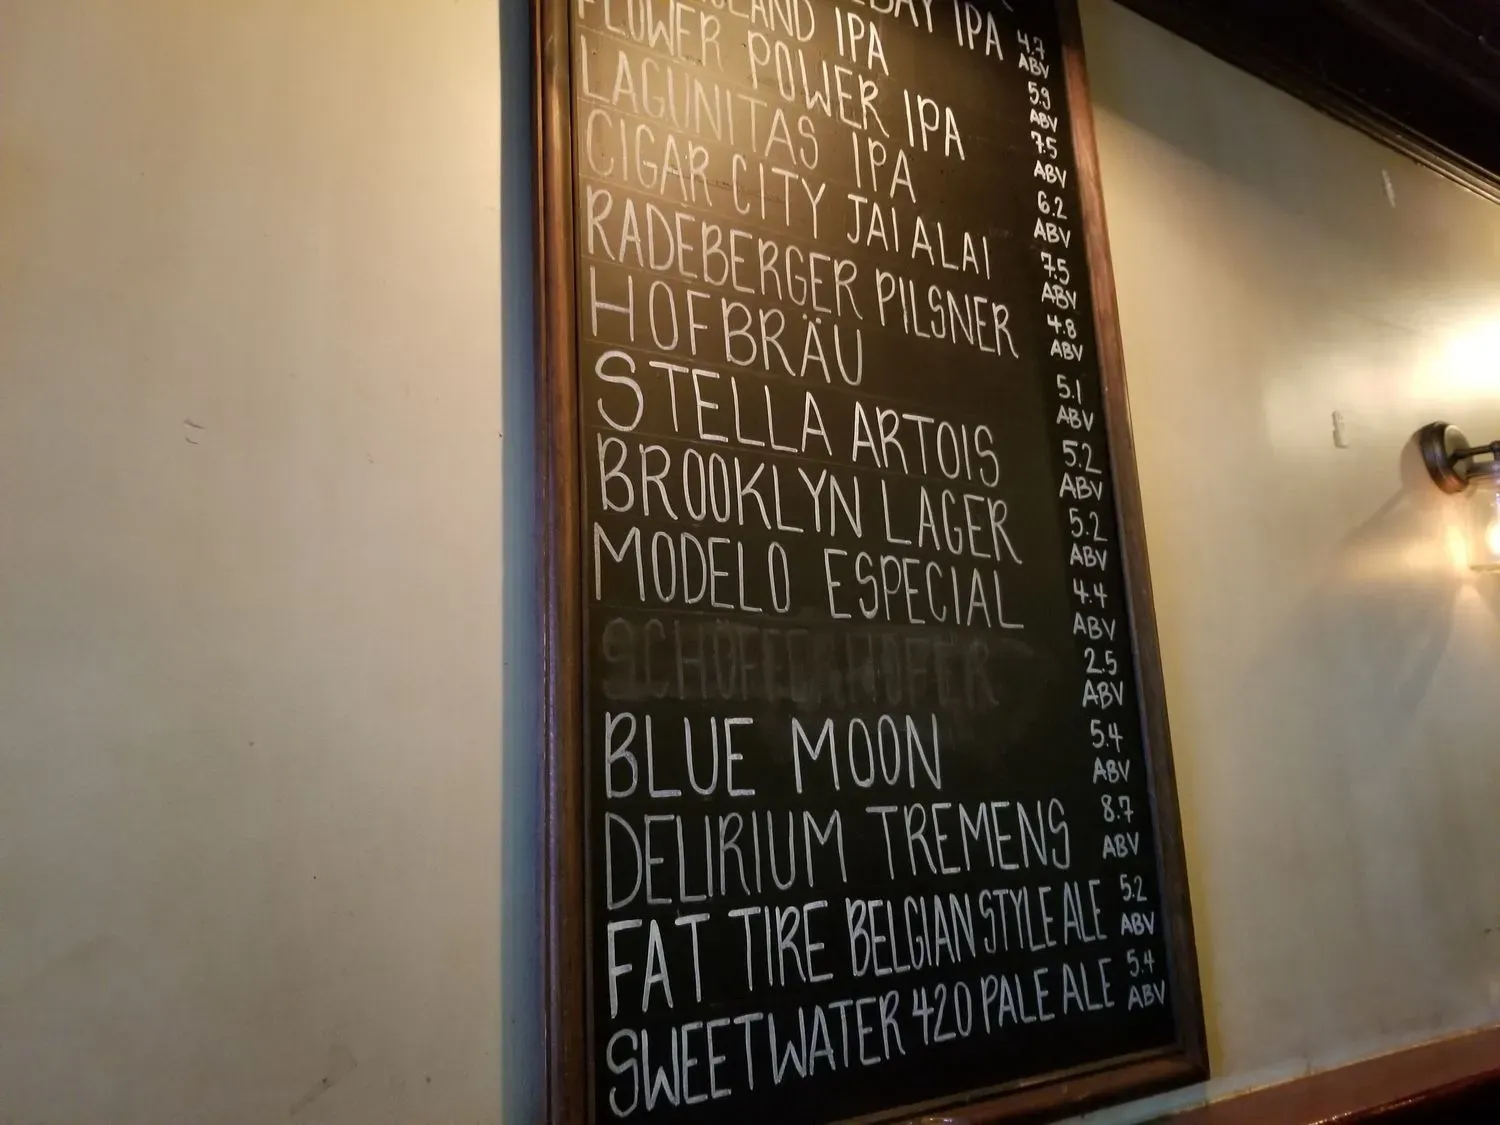 IPA
ISLAND IPA 4.7 ABV
FLOWER POWER IPA 5.9 ABV
LAGUNITAS IPA 7.5 ABV
CIGAR CITY JAI ALAI 6.2 ABV
RADEBERGER PILSNER 7.5 ABV
HOFBRÄU 4.8 ABV
STELLA ARTOIS 5.1 ABV
BROOKLYN LAGER 5.2 ABV
MODELO ESPECIAL 5.2 ABV
4.4 ABV
SCHÖFFERHOFER 2.5 ABV
BLUE MOON 5.4 ABV
DELIRIUM TREMENS 8.7 ABV
FAT TIRE BELGIAN STYLE ALE 5.2 ABV
SWEETWATER 420 PALE ALE 5.4 ABV